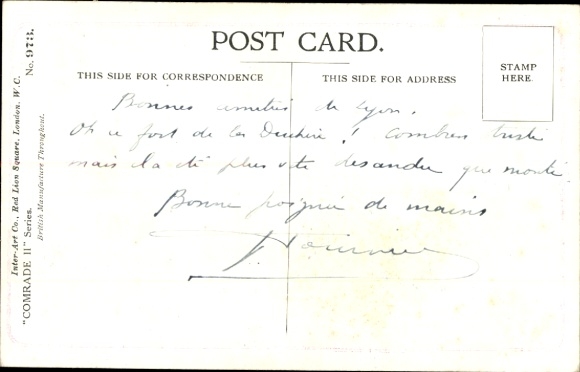 POST CARD.
THIS SIDE FOR CORRESPONDENCE
THIS SIDE FOR ADDRESS
STAMP
HERE.
Bonnes amitiés de Lyon.
Oh ce fort de la Duchère! Combien triste
mais il a été plus vite descendu que monté
Bonne poignée de mains
Inter-Art Co., Red Lion Square, London, W.C.
"COMRADE II" Series. No. 973.
British Manufacture Throughout.